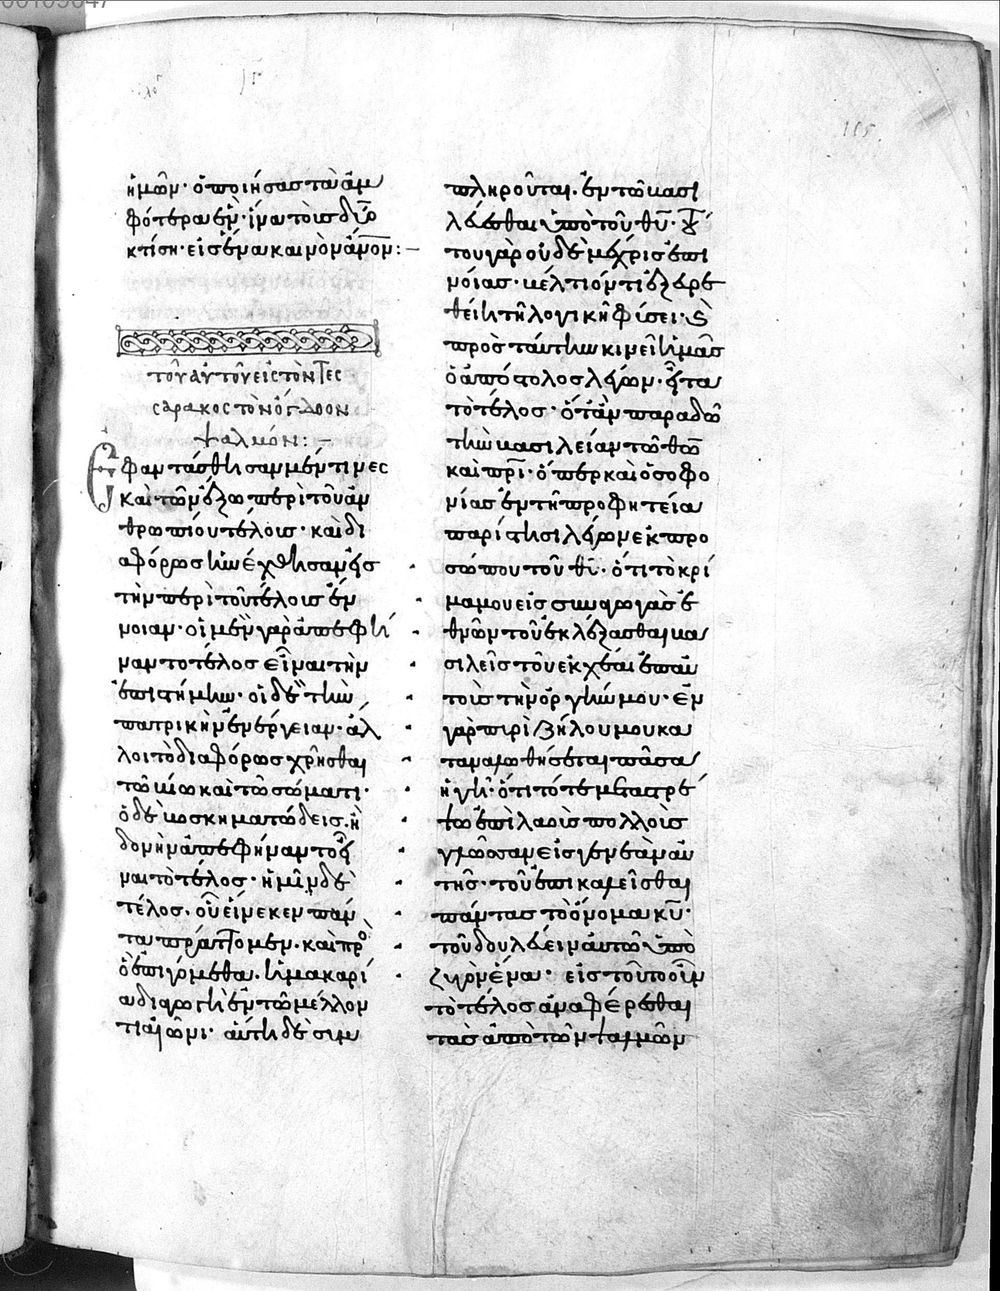 115.
ἡμῶν· ὁ ποιήσας τὰ ἀμ
φότερα ἕν· ἵνα τοὺς δύο
κτίσῃ· εἰς ἕνα καινὸν ἄνον:—
τοῦ αὐτοῦ εἰς τὸν τεσ
σαρακοστὸν ὄγδοον
ψαλμόν:—
Εφαντάσθησαν μέν τινες
καὶ τῶν ἔξω περὶ τοῦ ἀν
θρωπίου τέλους· καὶ δι
αφόρως ἠνέχθησαν εἰς
τὴν περὶ τοῦ τέλους ἔν
νοιαν· οἱ μὲν γὰρ ἀπεφή
ναντο τέλος εἶναι τὴν
ἐπιστήμην· οἱ δὲ τὴν
πατρικὴν ἐνέργειαν· ἄλ
λοι τὸ διαφόρως χρῆσθαι
τῶ βίω καὶ τῶ σώματι·
ὁ δὲ βοσκηματώδεις· ἡ
δονὴν ἀπεφήναντο εἶ
ναι τὸ τέλος· ἡμῖν δὲ
τέλος· οὗ εἵνεκεν πάν
τα πράττομεν· καὶ πρὸ
ὃ ἐπιγόμεθα· ἡ μακαρί
α διαγωγὴ ἐν τῶ μέλλον
τι αἰῶνι· αὕτη δὲ συμ
πληροῦται· ἐν τῶ βασι
λεύεσθαι ὑπὸ τοῦ θυ·
του γὰρ οὐδὲ μέχρις ἐπι
νοίας· βέλτιόν τι ἐξευρε
θείη τῆ λογικῆ φύσει·
πρὸς ταύτην κινεῖ ἡμᾶς
ὁ ἀπόστολος λέγων· εἶτα
τὸ τέλος· ὅταν παραδῶ
τὴν βασιλείαν τῶ θω
καὶ πρι· ὅπερ καὶ ὁ σοφο
νίας ἐν τῆ προφητεία
παρίστησι λέγων ἐκ προ
σώπου τοῦ θυ· ὅτι τὸ κρί
μα μου εἰς συναγωγὰς ἐ
θνῶν τοῦ ἐκλέξασθαι βα
σιλεῖς τοῦ ἐκχέαι ἐπ αὐ
τοὺς τὴν ὀργήν μου· ἐν
γὰρ πυρὶ ζήλου μου κα
ταναλωθήσεται πᾶσα
ἡ γῆ· ὅτι τότε μεταστρέ
ψω ἐπὶ λαοὺς πολλοὺς
γλῶσσαν εἰς γενεὰν αὐ
τῆς· τοῦ ἐπικαλεῖσθαι
πάντας τὸ ὄνομα κυ·
τοῦ δουλεύειν αὐτῶ ὑπὸ
ζυγὸν ἕνα· εἰς τοῦτο οὖν
τὸ τέλος ἀναφέρεσθαι
τὰς ἀπὸ τῶν ψαλμῶν